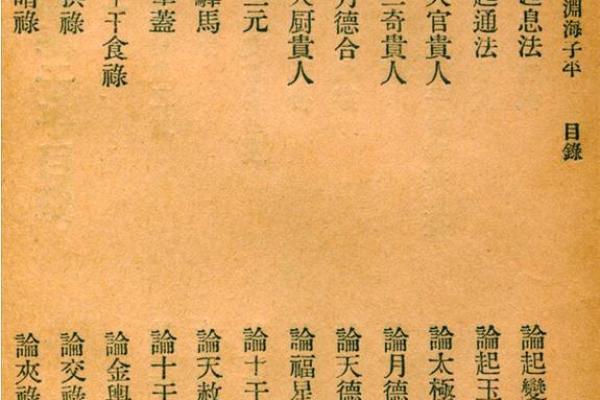 淵海子平 目錄
息法
起通法
天官貴人
三奇貴人
月德合
天厨貴人
三元
驛馬
華蓋
十干食祿
拱祿
暗祿
論起變
論起玉
論太極
論月德
論天德
論福星
論十干
論天赦
論十干
論金輿
論交祿
論夾祿